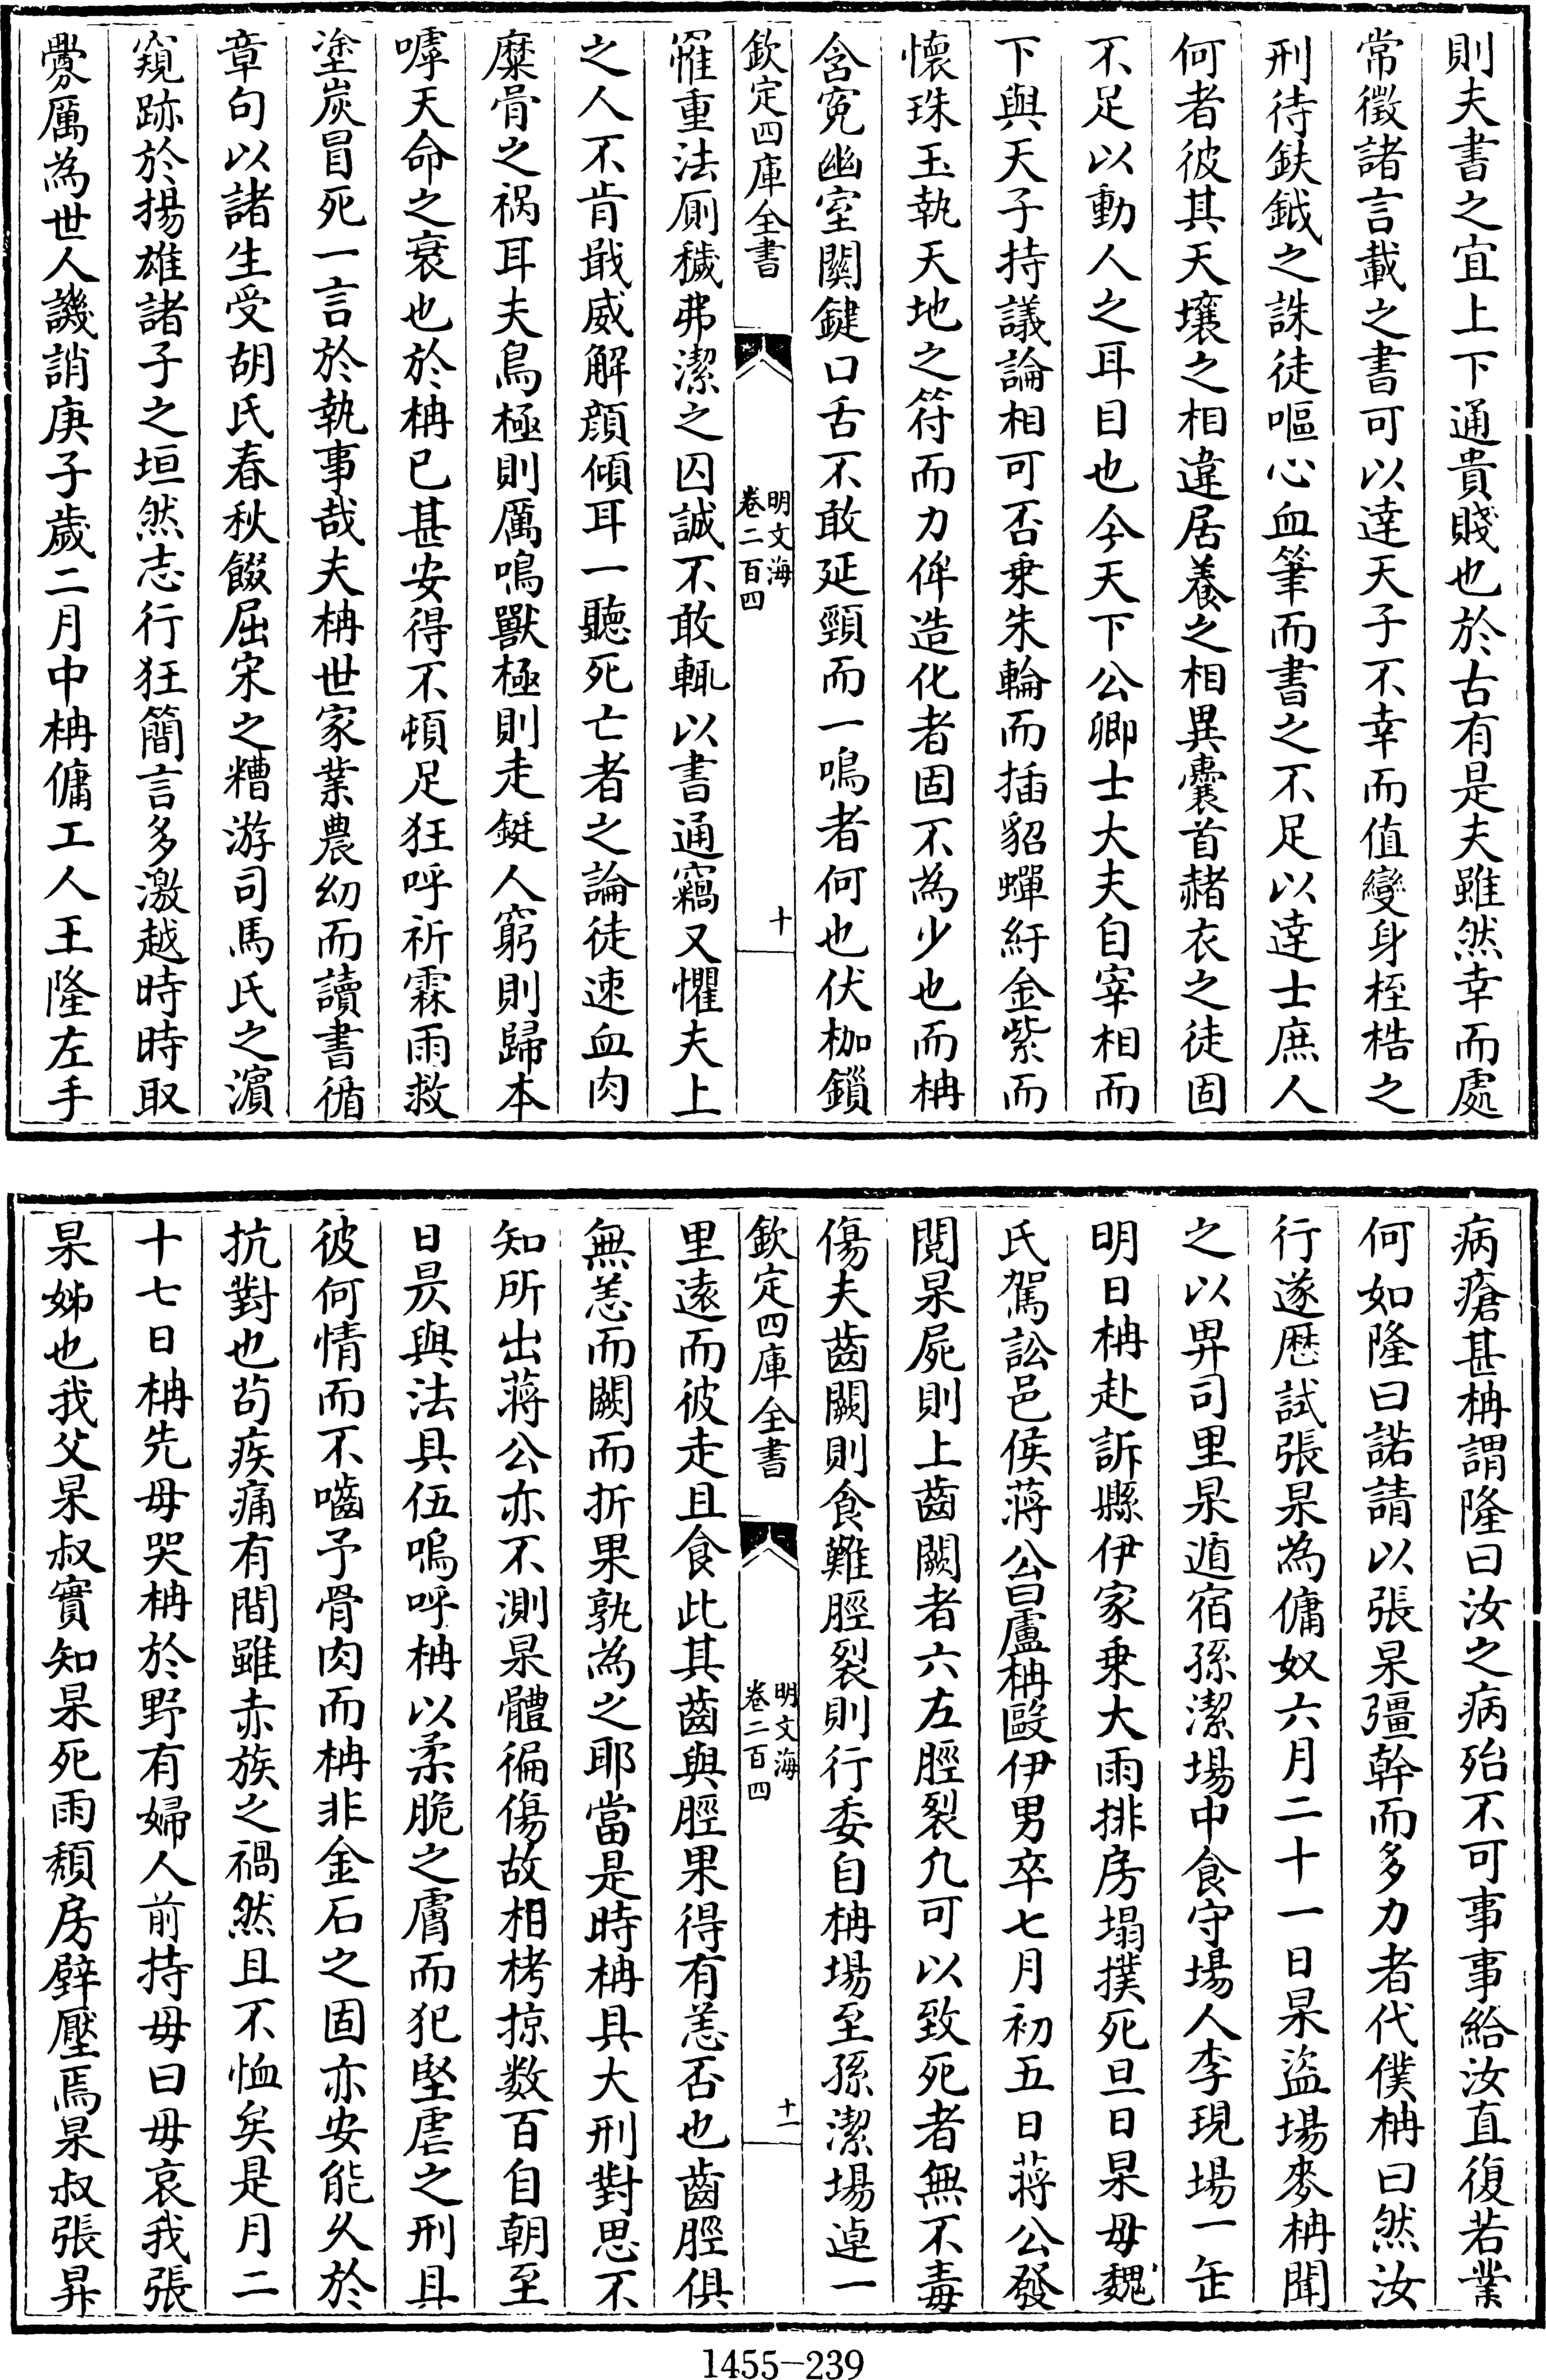 則夫書之宜上下通貴賤也於古有是夫雖然幸而處
常徵諸言載之書可以達天子不幸而值變身桎梏之
刑待鈇鉞之誅徒嘔心血筆而書之不足以達士庶人
何者彼其天壤之相違居養之相異囊首赭衣之徒固
不足以動人之耳目也今天下公卿士大夫自宰相而
下與天子持議論相可否乗朱輪而插貂蟬紆金紫而
懷珠玉執天地之符而力侔造化者固不為少也而柟
含寃幽室關鍵口舌不敢延頸而一鳴者何也伏枷鎖
欽定四庫全書
明文海
卷二百四
十
罹重法厠穢弗潔之囚誠不敢輒以書通竊又懼夫上
之人不肯戢威解顔傾耳一聽死亡者之論徒速血肉
糜骨之禍耳夫鳥極則厲鳴獸極則走鋌人窮則歸本
嘑天命之衰也於柟已甚安得不頓足狂呼祈霖雨救
塗炭冒死一言於執事哉夫柟世家業農幼而讀書循
章句以諸生受胡氏春秋餟屈宋之糟游司馬氏之濵
窺跡於揚雄諸子之垣然志行狂簡言多激越時時取
釁厲為世人譏誚庚子歲二月中柟傭工人王隆左手
病瘡甚柟謂隆曰汝之病殆不可事事給汝直復若業
何如隆曰諾請以張杲彊幹而多力者代僕柟曰然汝
行遂歴試張杲為傭奴六月二十一日杲盜場麥柟聞
之以畀司里杲遁宿孫潔場中食守場人李現場一缶
明日柟赴訴縣伊家乗大雨排房塌撲死旦日杲母魏
氏駕訟邑侯蔣公曰盧柟毆伊男卒七月初五日蔣公發
閲杲屍則上齒闕者六左脛裂凢可以致死者無不毒
傷夫齒闕則食難脛裂則行委自柟場至孫潔場逴一
欽定四庫全書
明文海
卷二百四
十一
里遠而彼走且食此其齒與脛果得有恙否也齒脛俱
無恙而闕而折果孰為之耶當是時柟具大刑對思不
知所出蔣公亦不測杲體徧傷故相栲掠数百自朝至
日昃與法具伍嗚呼柟以柔脆之膚而犯堅虐之刑且
彼何情而不嚙予骨肉而柟非金石之固亦安能久於
抗對也苟疾痛有間雖赤族之禍然且不恤矣是月二
十七日柟先母哭柟於野有婦人前持母曰母哀我張
杲姊也我父杲叔實知杲死雨頽房壁壓焉杲叔張昇
1455-239